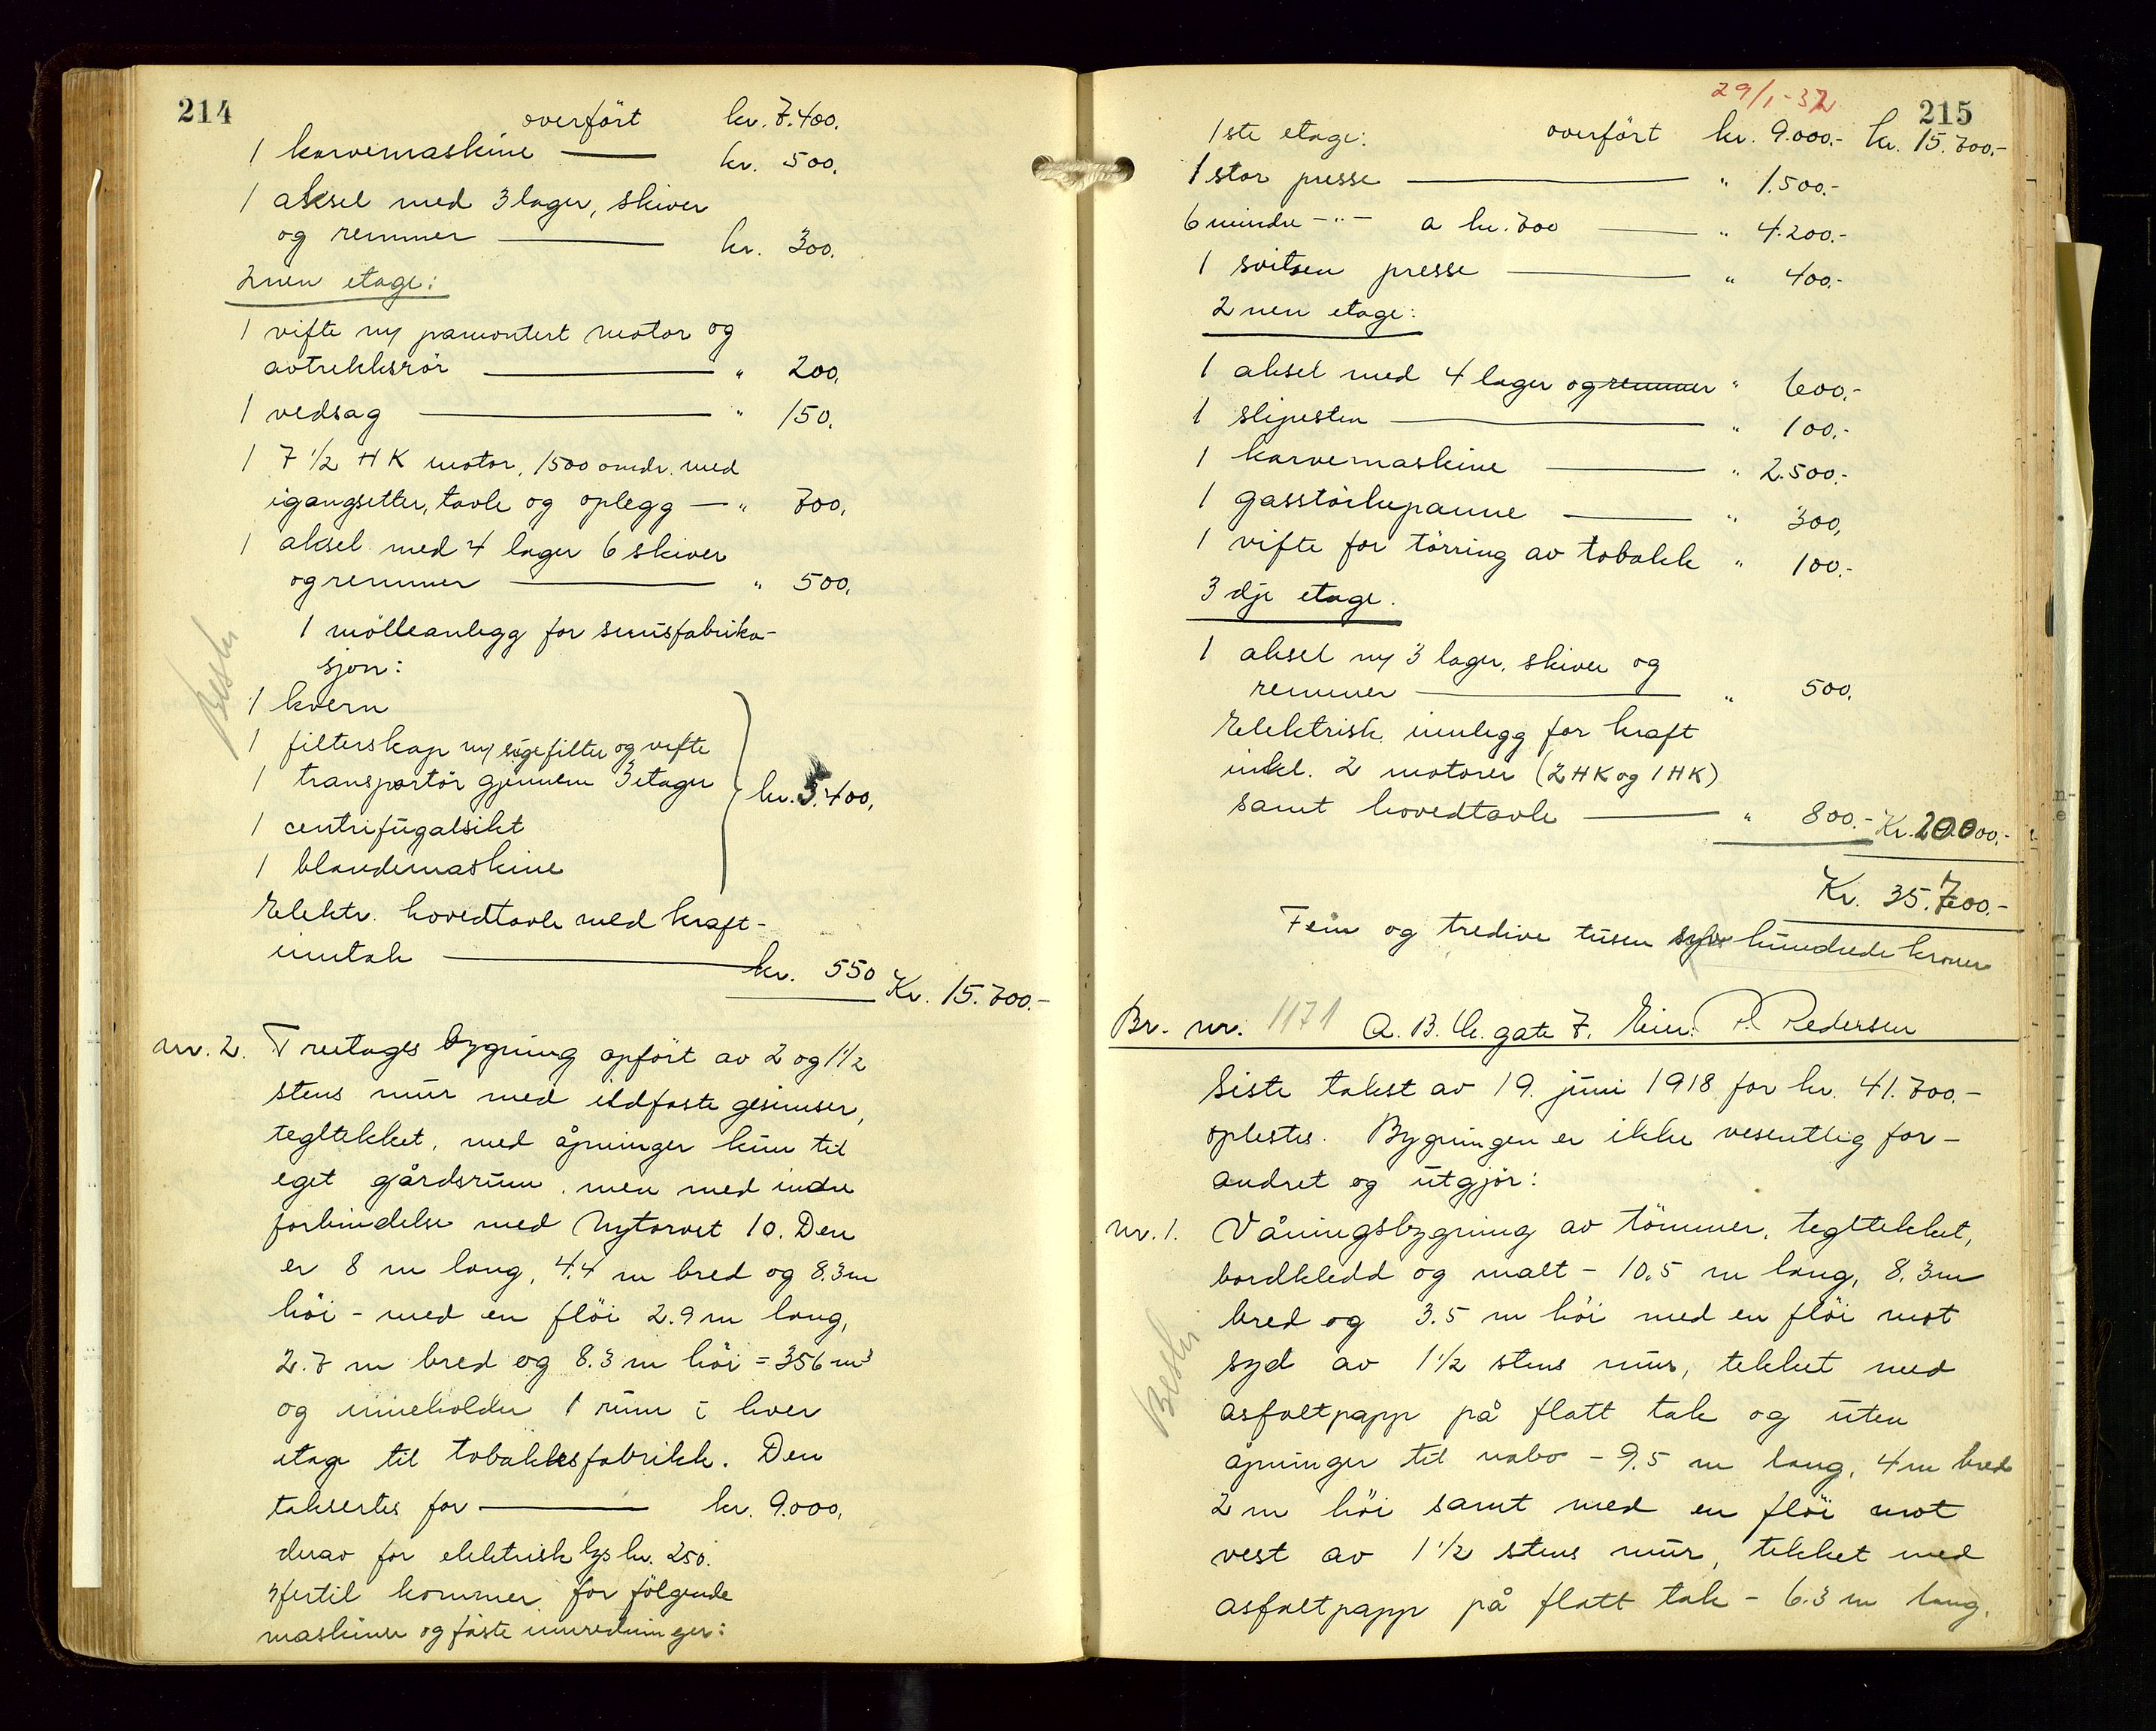 214
overfört kr. 7.400.
1 karvemaskine — kr. 500.
1 aksel med 3 lager, skiver
og remmer — kr. 300.
2nen etage:
1 vifte m/ pamontert motor og
avtrekksrör — " 200.
1 vedsag — " 150.
1 7 1/2 HK motor, 1500 omdr. med
igangsetter, tavle og oplegg — " 700.
1 aksel med 4 lager 6 skiver
og remmer — " 500.
1 mölleanlegg for snusfabrika-
sjon:
1 kvern
1 filterskap m/ sugefilter og vifte
1 transportör gjennem 3 etager
kr. 5.400.
1 centrifugalsikt
1 blandemaskine
Elektr. hovedtavle med kraft-
inntak — kr. 550 Kr. 15.700.-
nr. 2. Treetages bygning opfört av 2 og 1 1/2
stens mur med ildfaste gesimser,
tegltekket, med åpninger kun til
eget gårdsrum, men med indre
forbindelse med Nytorvet 10. Den
er 8 m lang, 4.4 m bred og 8.3 m
höi - med en flöi 2.9 m lang,
2.7 m bred og 8.3 m höi = 356 m³
og inneholder 1 rum i hver
etage til tobakksfabrikk. Den
taksertes for — kr. 9.000.
derav for elektrisk lys kr. 250.
Hertil kommer for fölgende
maskiner og faste innredninger:
29/1-32
215
1ste etage: overfört kr. 9.000.- kr. 15.700.-
1 stor presse — " 1.500.-
6 mindre -"- a kr. 700 — " 4.200.-
1 svitsen presse — " 400.-
2nen etage:
1 aksel med 4 lager og remmer " 600.-
1 slipesten — " 100.-
1 karvemaskine — " 2.500.-
1 gasstörkepanne — " 300.
1 vifte for törring av tobakk " 100.-
3dje etage.
1 aksel m/ 3 lager, skiver og
remmer — " 500.
Elektrisk innlegg for kraft
inkl. 2 motorer (2 HK og 1 HK)
samt hovedtavle — " 800.- Kr. 20000.-
Kr. 35.700.-
Fem og tredive tusen syv hundrede kroner
Br. nr. 1171 O. B. Ch. gate 7. Eier. P. Pedersen
Siste takst av 19. juni 1918 for kr. 41.700.-
oplestes. Bygningen er ikke vesentlig for-
andret og utgjör:
nr. 1. Våningsbygning av tömmer, tegltekket,
bordkledd og malt - 10.5 m lang, 8.3 m
bred og 3.5 m höi med en flöi mot
syd av 1 1/2 stens mur, tekket med
asfaltpapp på flatt tak og uten
åpninger til nabo - 9.5 m lang, 4 m bred
2 m höi samt med en flöi mot
vest av 1 1/2 stens mur, tekket med
asfaltpapp på flatt tak - 6.3 m lang,